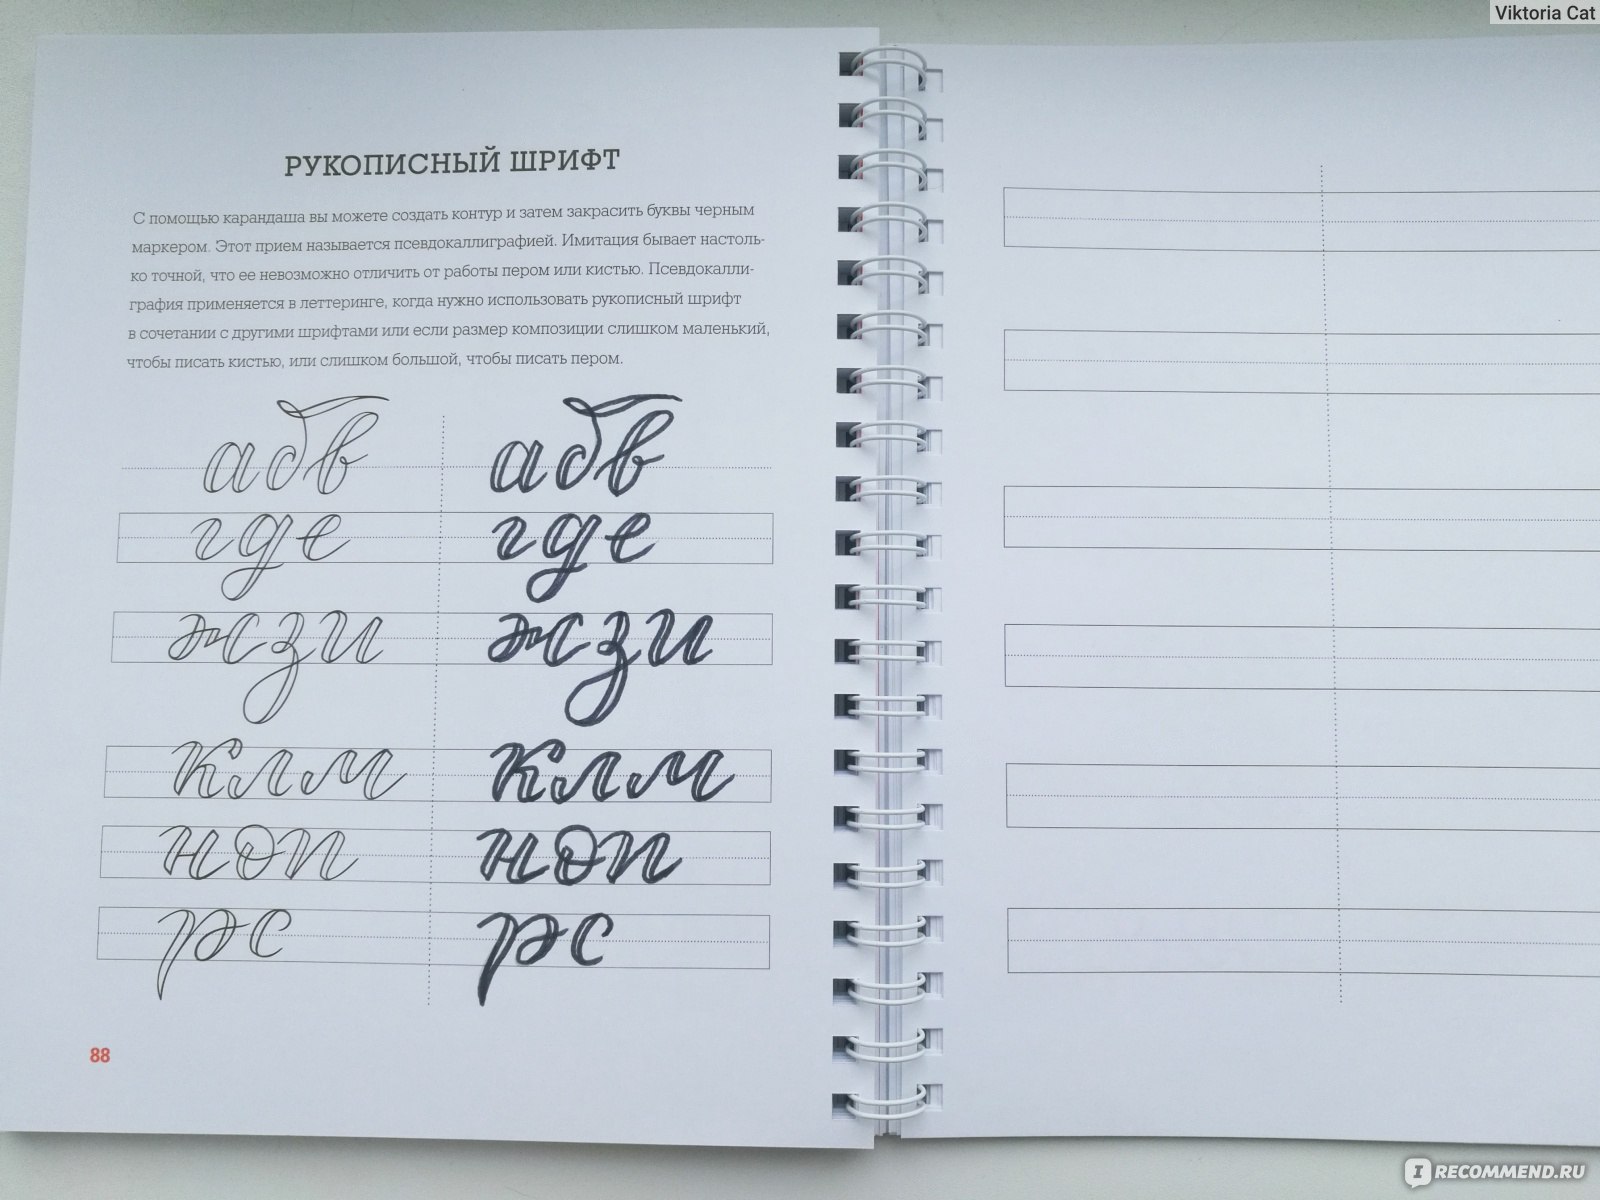 Viktoria Cat
РУКОПИСНЫЙ ШРИФТ
С помощью карандаша вы можете создать контур и затем закрасить буквы черным
маркером. Этот прием называется псевдокаллиграфией. Имитация бывает настоль-
ко точной, что ее невозможно отличить от работы пером или кистью. Псевдокалли-
графия применяется в леттеринге, когда нужно использовать рукописный шрифт
в сочетании с другими шрифтами или если размер композиции слишком маленький,
чтобы писать кистью, или слишком большой, чтобы писать пером.
абв абв
где где
жзи жзи
клм клм
ноп ноп
рс рс
88
IRECOMMEND.RU